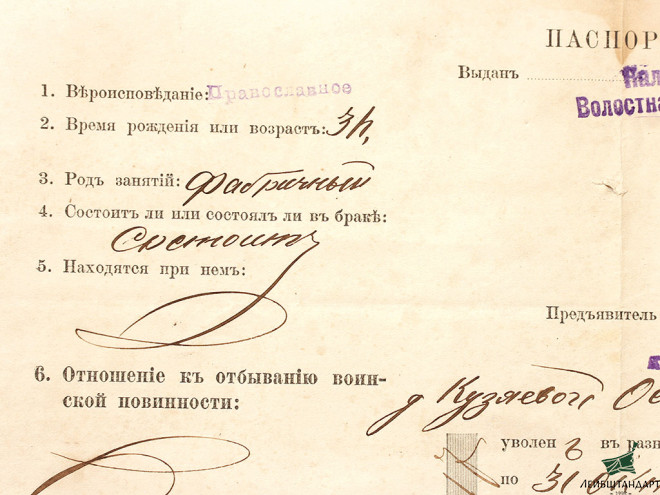 ПАСПОР
Выданъ
Волостна
1. Вѣроисповѣданіе: Православное
2. Время рожденія или возрастъ:
3. Родъ занятій: Фабричный
4. Состоитъ ли или состоялъ ли въ бракѣ:
Состоитъ
5. Находятся при немъ:
Предъявитель
6. Отношеніе къ отбыванію воин-
ской повинности:
д Кузяевой
уволен въ разн
по 31
ЛЕЙБШТАНДАРТ